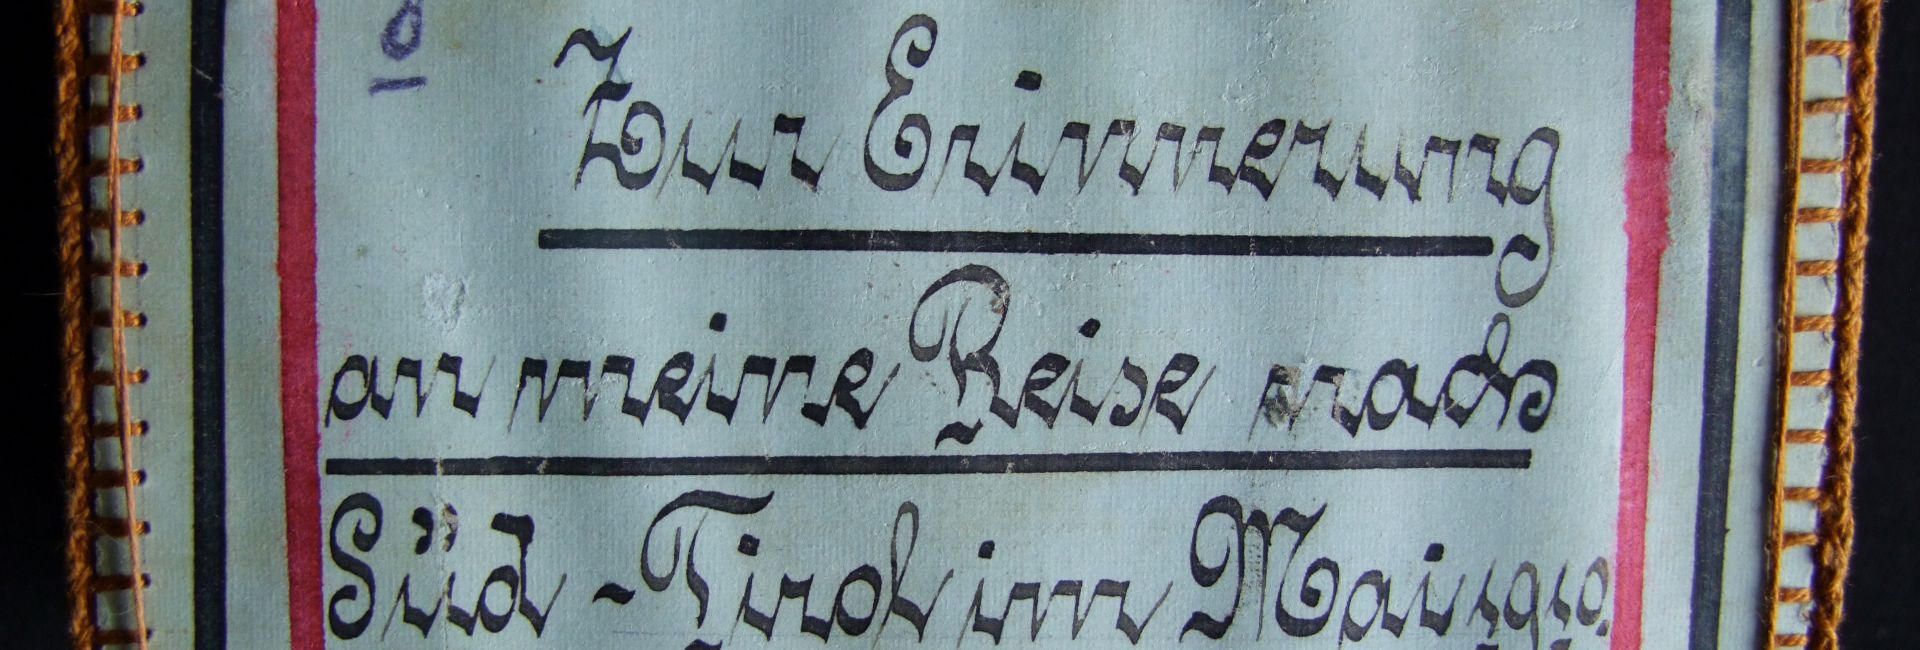 Zur Erinnerung
an meine Reise nach
Süd-Tirol im Mai 1910.